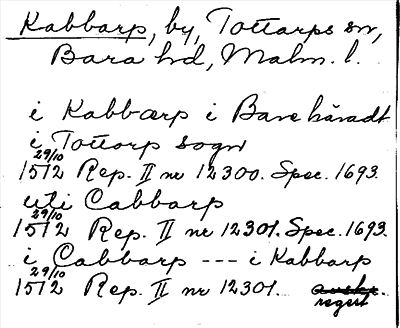 Kabbarp, by, Tottarps sn,
Bara hd, Malm. l.
i Kabbarp i Bare häradt
i Tottorp sogn
29/10
1512 Rep. II nr 12300. Spec. 1693.
uti Cabbarp
29/10
1512 Rep. II nr 12301. Spec. 1693.
i Cabbarp --- i Kabbarp
29/10
1512 Rep. II nr 12301.
regest